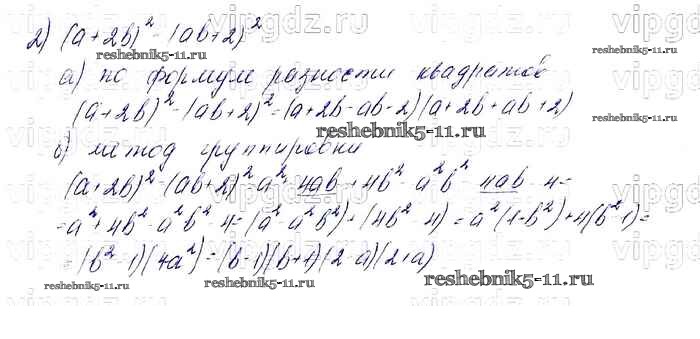 vipgdz.ru vipgdz.ru vipgdz.ru
2) (a+2b)² - (ab+2)²
reshebnik5-11.ru
а) по формуле разности квадратов
(a+2b)² - (ab+2)² = (a+2b-ab-2)(a+2b+ab+2)
reshebnik5-11.ru
б) метод группировки
(a+2b)² - (ab+2)² = a² + 4ab + 4b² - a²b² - 4ab - 4 =
= a² + 4b² - a²b² - 4 = (a² - a²b²) + (4b² - 4) = a²(1-b²) + 4(b²-1) =
= (b²-1)(4-a²) = (b-1)(b+1)(2-a)(2+a)
reshebnik5-11.ru
reshebnik5-11.ru